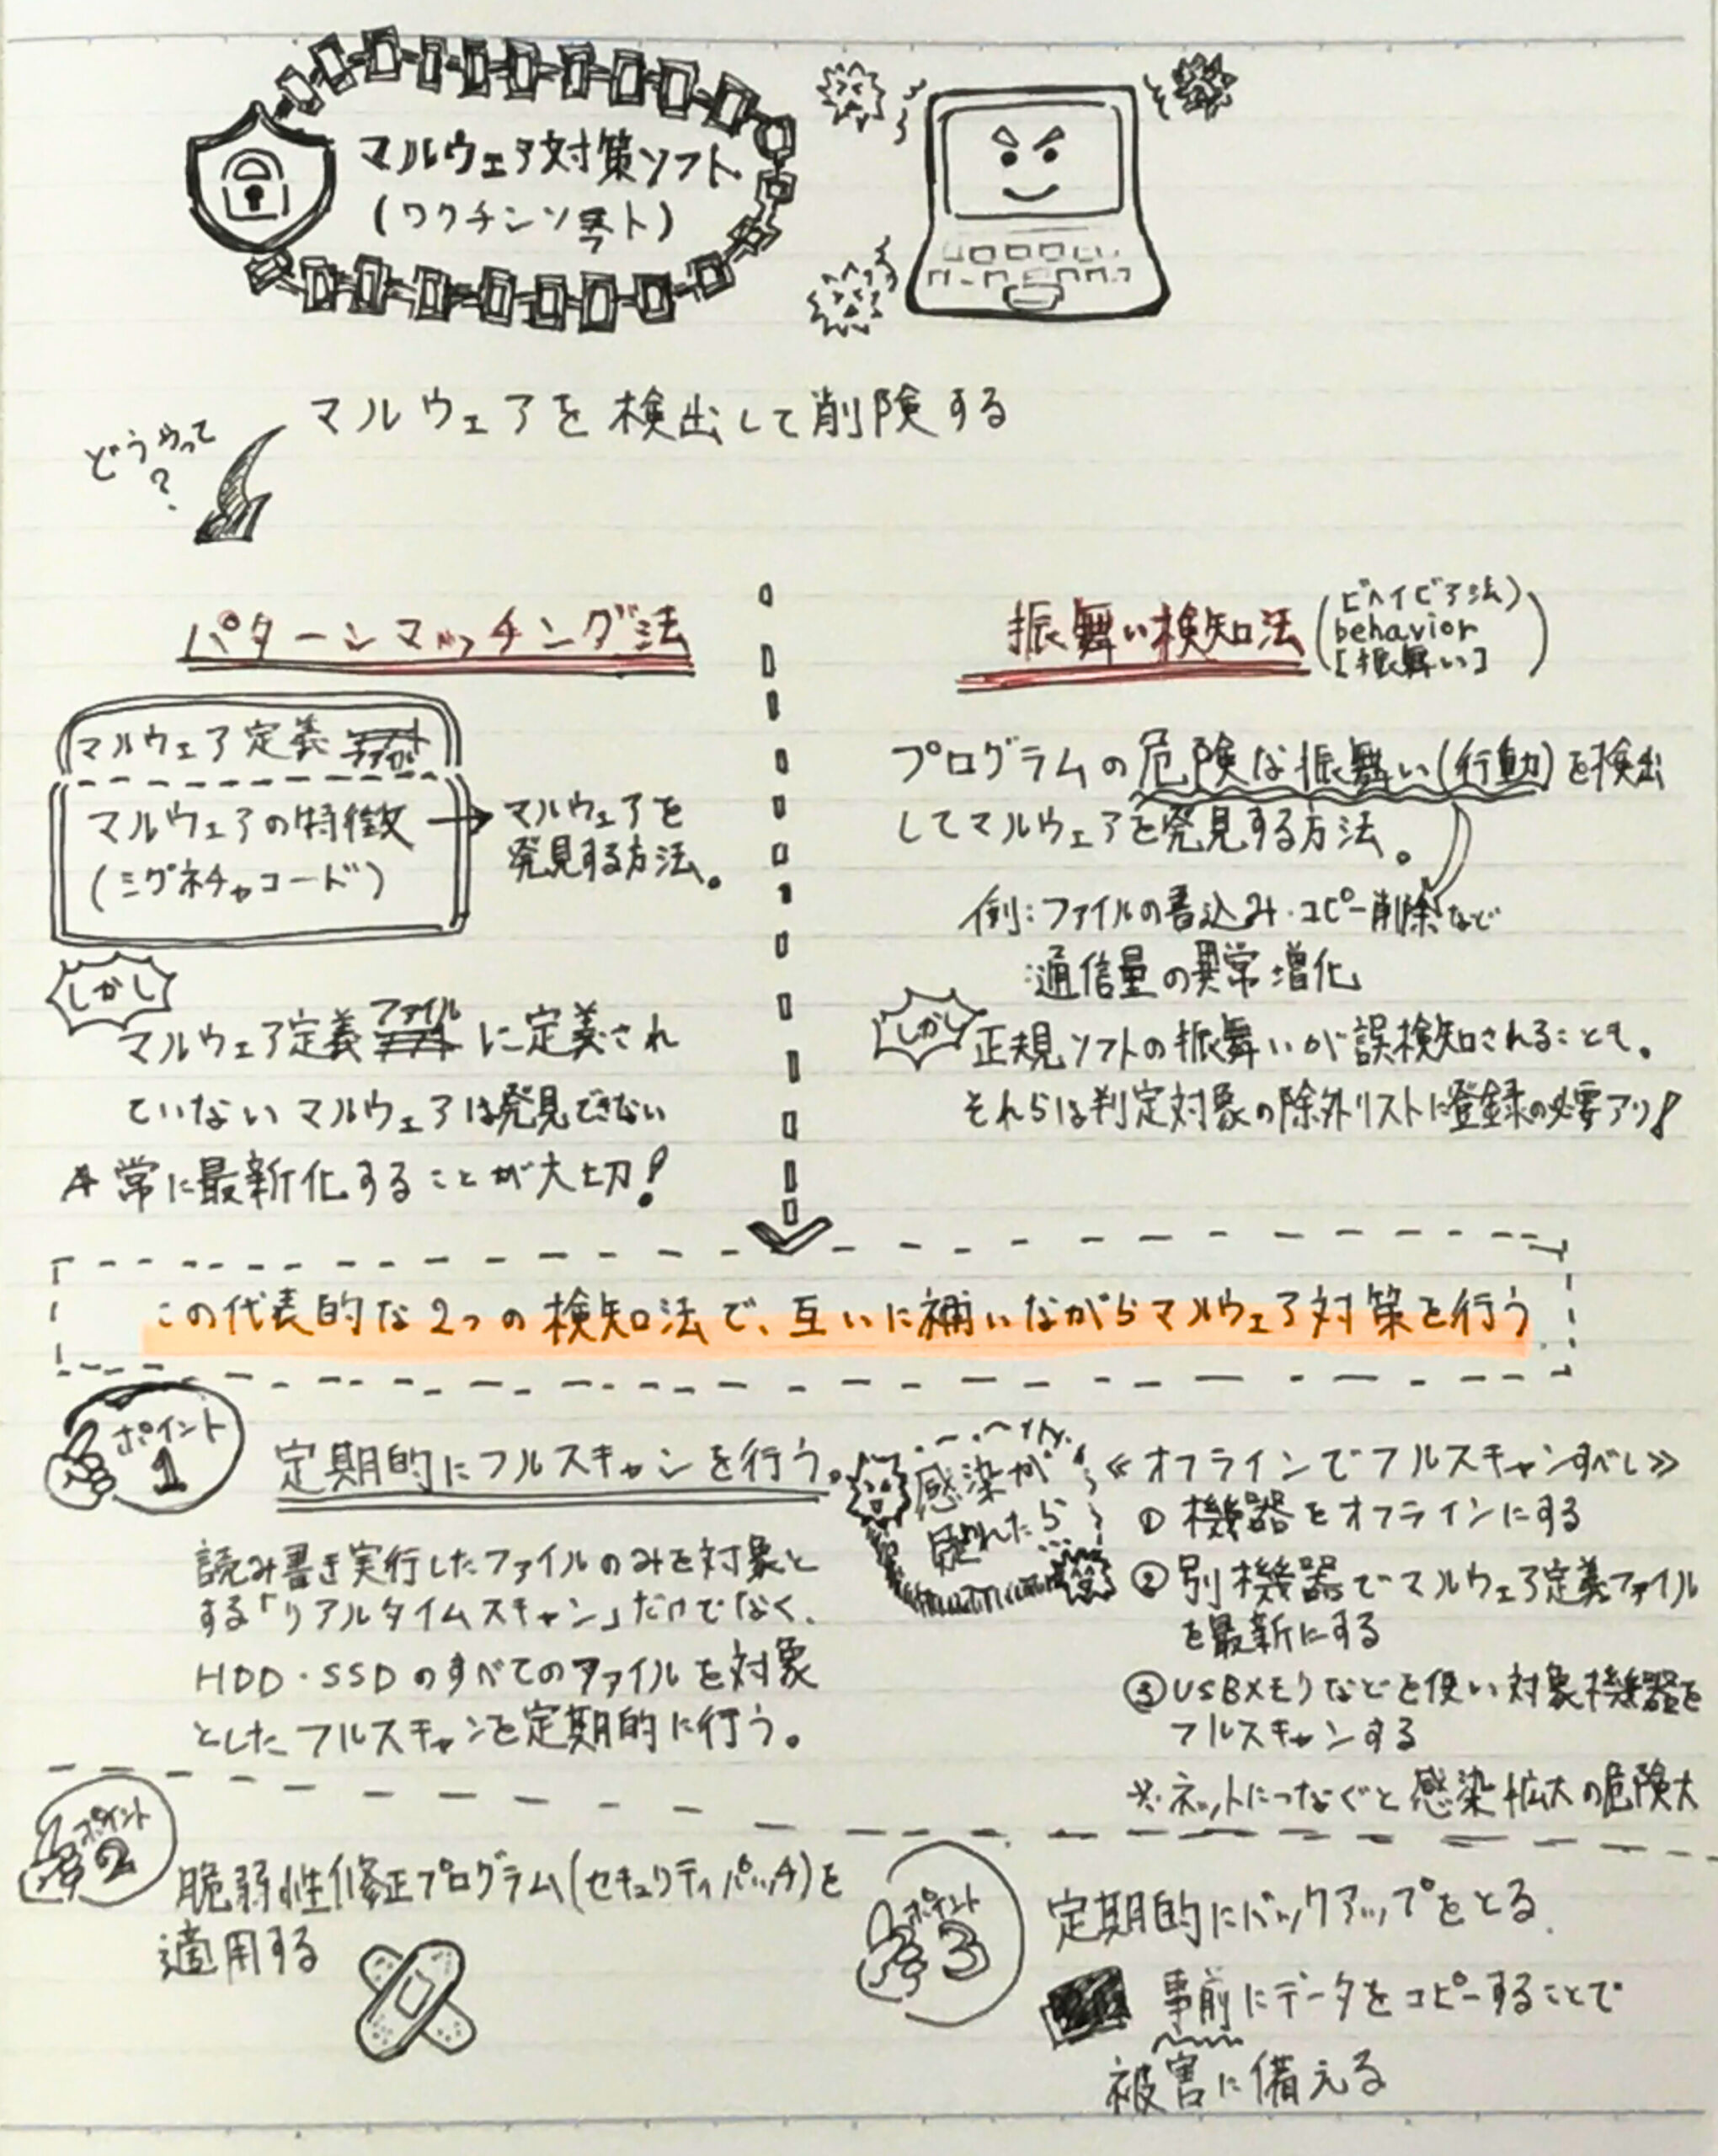 マルウェア対策ソフト
(ワクチンソフト)
マルウェアを検出して削除する
どうやって
?
パターンマッチング法
マルウェア定義
マルウェアの特徴
(シグネチャコード)
→マルウェアを
発見する方法。
しかし
マルウェア定義ファイルに定義され
ていないマルウェアは発見できない
常に最新化することが大切!
振舞い検知法
(ビヘイビア法)
behavior
[振舞い]
プログラムの危険な振舞い(行動)を検出
してマルウェアを発見する方法。
例:ファイルの書込み・コピー削除など
:通信量の異常増化
しかし
正規ソフトの振舞いが誤検知されることも。
それらは判定対象の除外リストに登録の必要アリ!
この代表的な2つの検知法で、互いに補いながらマルウェア対策を行う
ポイント
1
定期的にフルスキャンを行う。
読み書き実行したファイルのみを対象と
する「リアルタイムスキャン」だけでなく、
HDD・SSDのすべてのファイルを対象
としたフルスキャンを定期的に行う。
感染が
疑われたら
≪オフラインでフルスキャンすべし≫
① 機器をオフラインにする
② 別機器でマルウェア定義ファイル
を最新にする
③ USBメモリなどを使い対象機器を
フルスキャンする
※ネットにつなぐと感染拡大の危険大
ポイント
2
脆弱性修正プログラム(セキュリティパッチ)を
適用する
ポイント
3
定期的にバックアップをとる。
事前にデータをコピーすることで
被害に備える